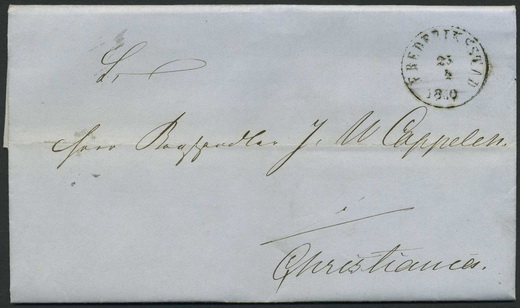 FREDERIKSSTAD
25
4
S.
Herr Boghandler J. W. Cappelen.
i
Christiania.